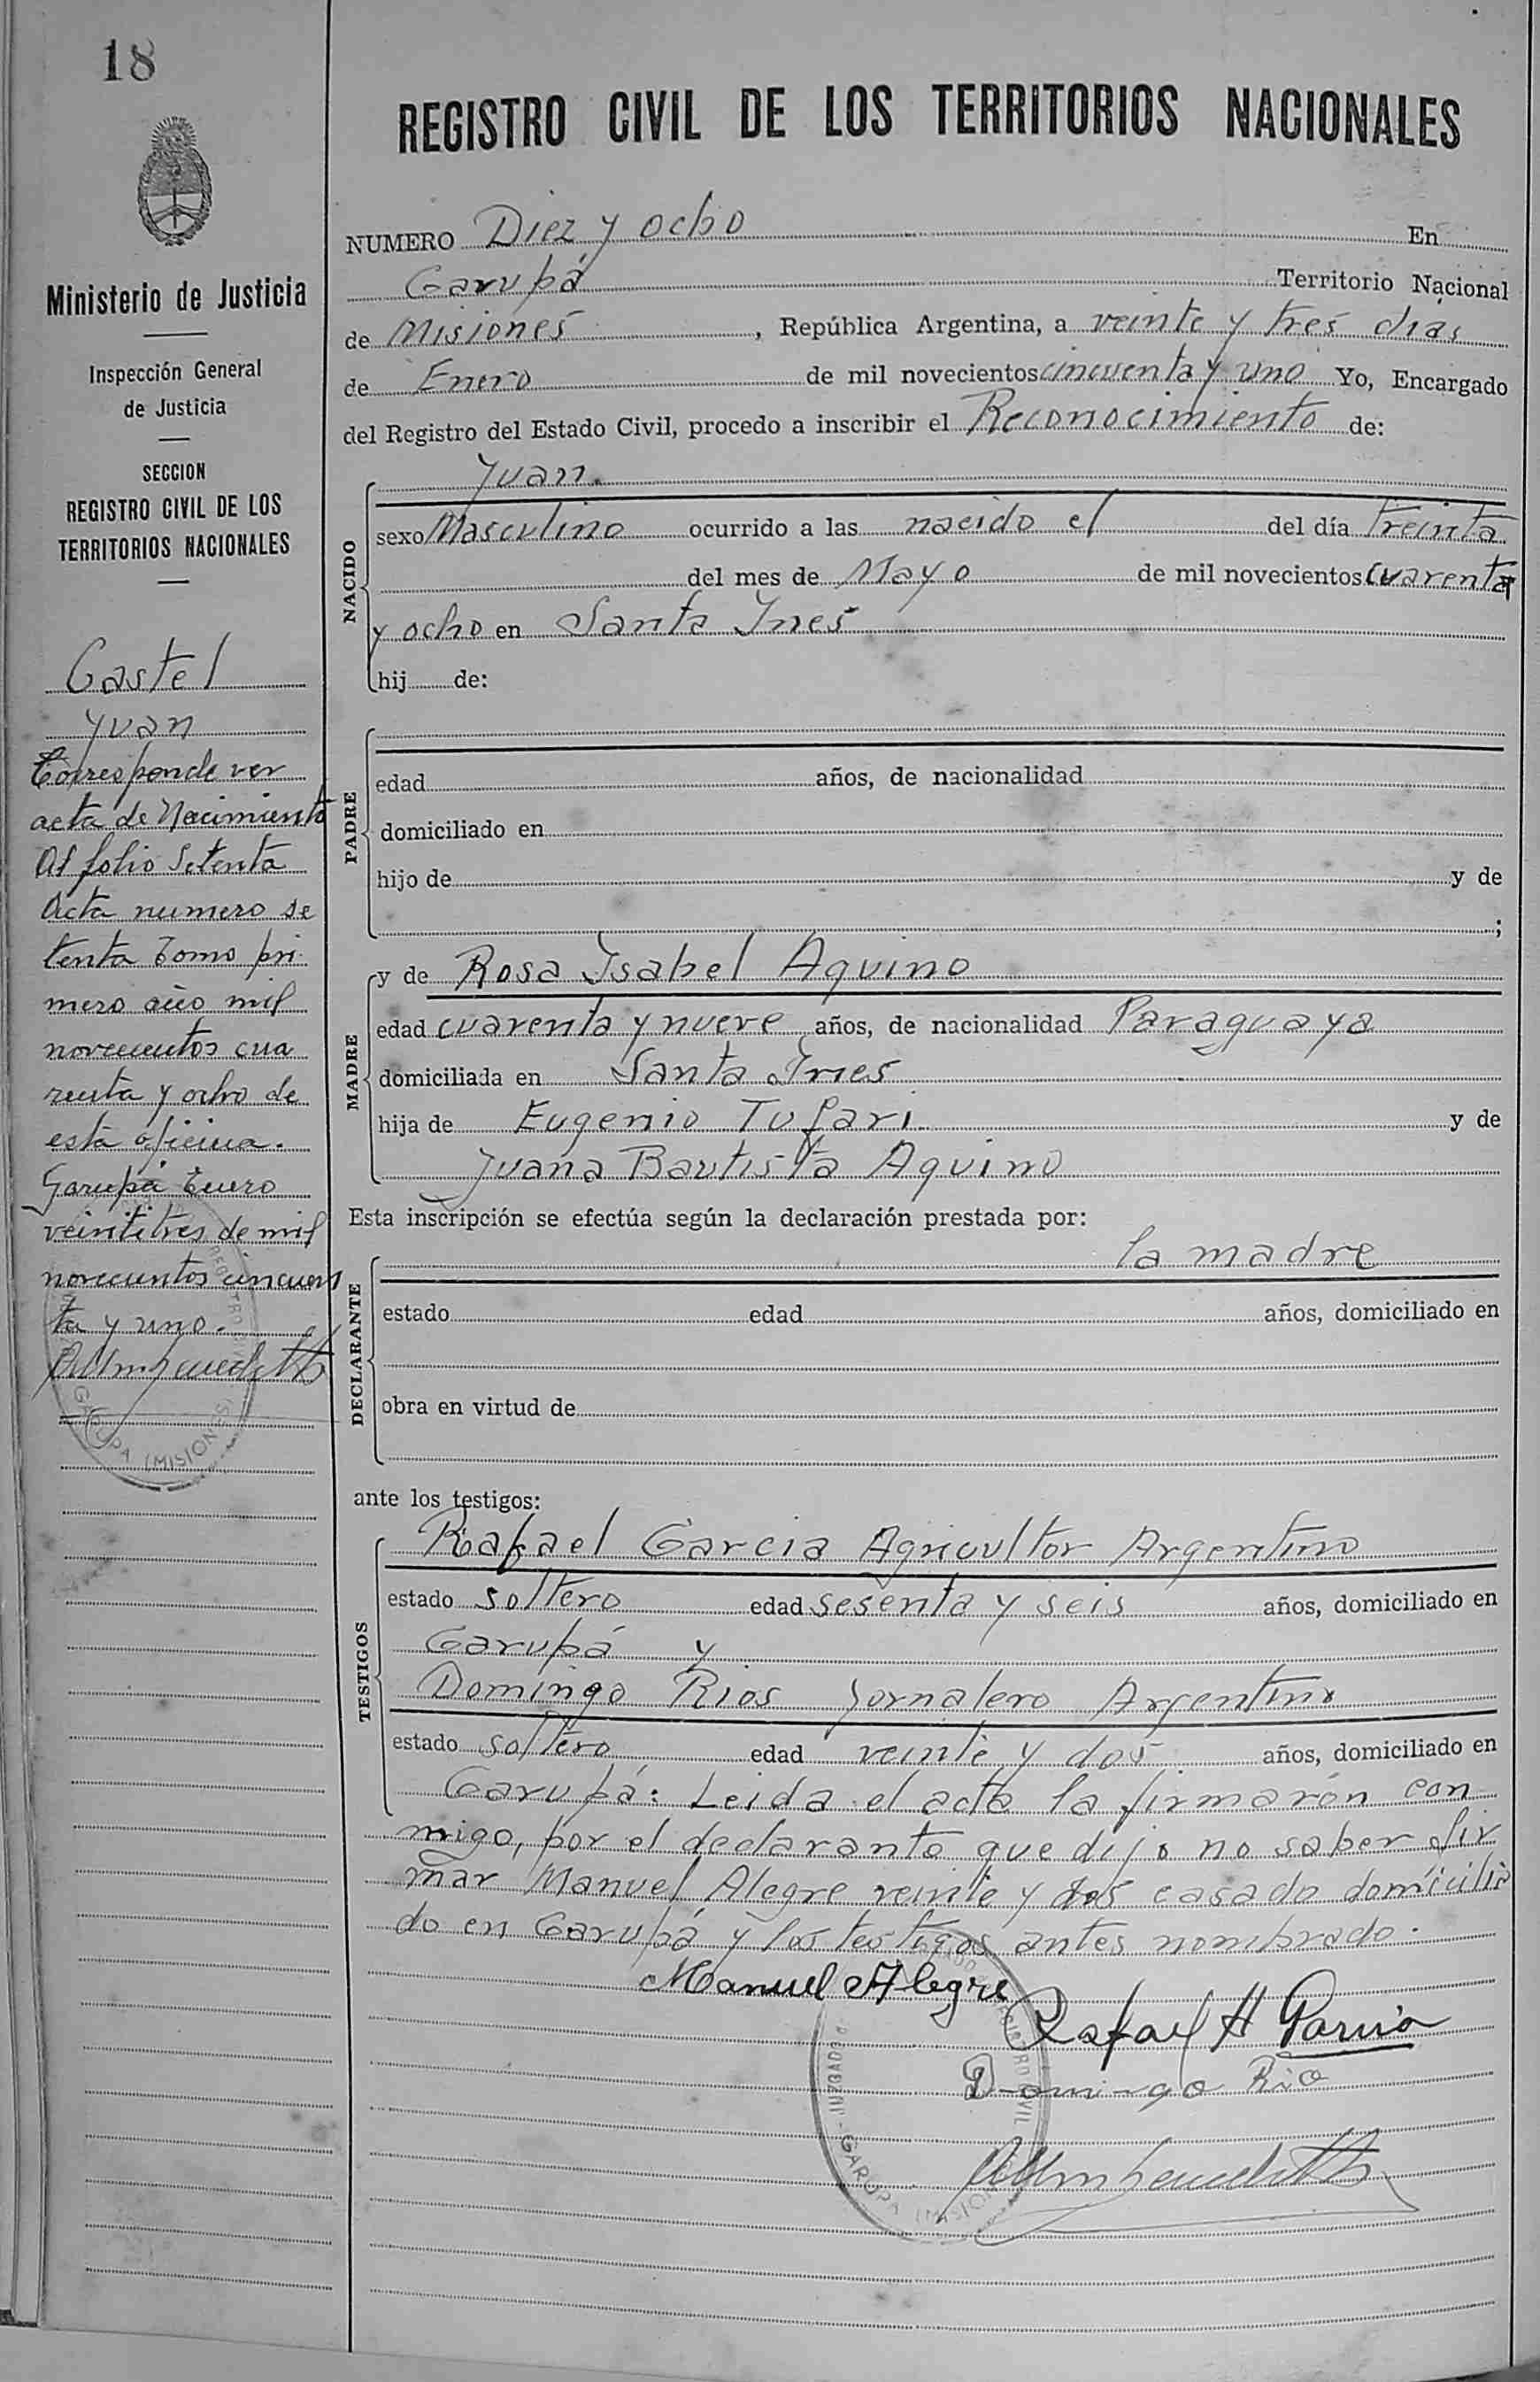 18
Ministerio de Justicia
Inspección General
de Justicia
SECCION
REGISTRO CIVIL DE LOS
TERRITORIOS NACIONALES
Gastel
Yuan
Corresponde ver
acta de Nacimiento
Al folio Setenta
Acta numero se
tenta Tomo pri
mero año mil
novecientos cua
renta y ocho de
esta oficina.
Garupá Enero
veintitres de mil
novecientos cincuen
ta y uno.
GARUPA (MISIONES)
REGISTRO CIVIL DE LOS TERRITORIOS NACIONALES
NUMERO Diez y ocho En
Garupá Territorio Nacional
de Misiones, República Argentina, a veinte y tres dias
de Enero de mil novecientos cincuenta y uno Yo, Encargado
del Registro del Estado Civil, procedo a inscribir el Reconocimiento de:
NACIDO
Yuan.
sexo Masculino ocurrido a las nacido el del día treinta
del mes de Mayo de mil novecientos cuarenta
y ocho en Santa Ynes
hij de:
PADRE
edad años, de nacionalidad
domiciliado en
hijo de y de
;
MADRE
y de Rosa Ysabel Aquino
edad cuarenta y nueve años, de nacionalidad Paraguaya
domiciliada en Santa Ynes
hija de Eugenio Tufari y de
Juana Bautista Aquino
Esta inscripción se efectúa según la declaración prestada por:
DECLARANTE
la madre
estado edad años, domiciliado en
obra en virtud de
ante los testigos:
TESTIGOS
Rafael Garcia Agricultor Argentino
estado soltero edad sesenta y seis años, domiciliado en
Garupá y
Domingo Rios Jornalero Argentino
estado soltero edad veinte y dos años, domiciliado en
Garupá: Leida el acta la firmarón con
migo, por el declarante que dijo no saber fir
mar Manuel Alegre veinte y dos casado domicilia
do en Garupá y los testigos antes nombrado.
Manuel Alegre
Rafael A Garcia
Domingo Rio
JUZGADO GARUPA (MISIONES) REGISTRO CIVIL